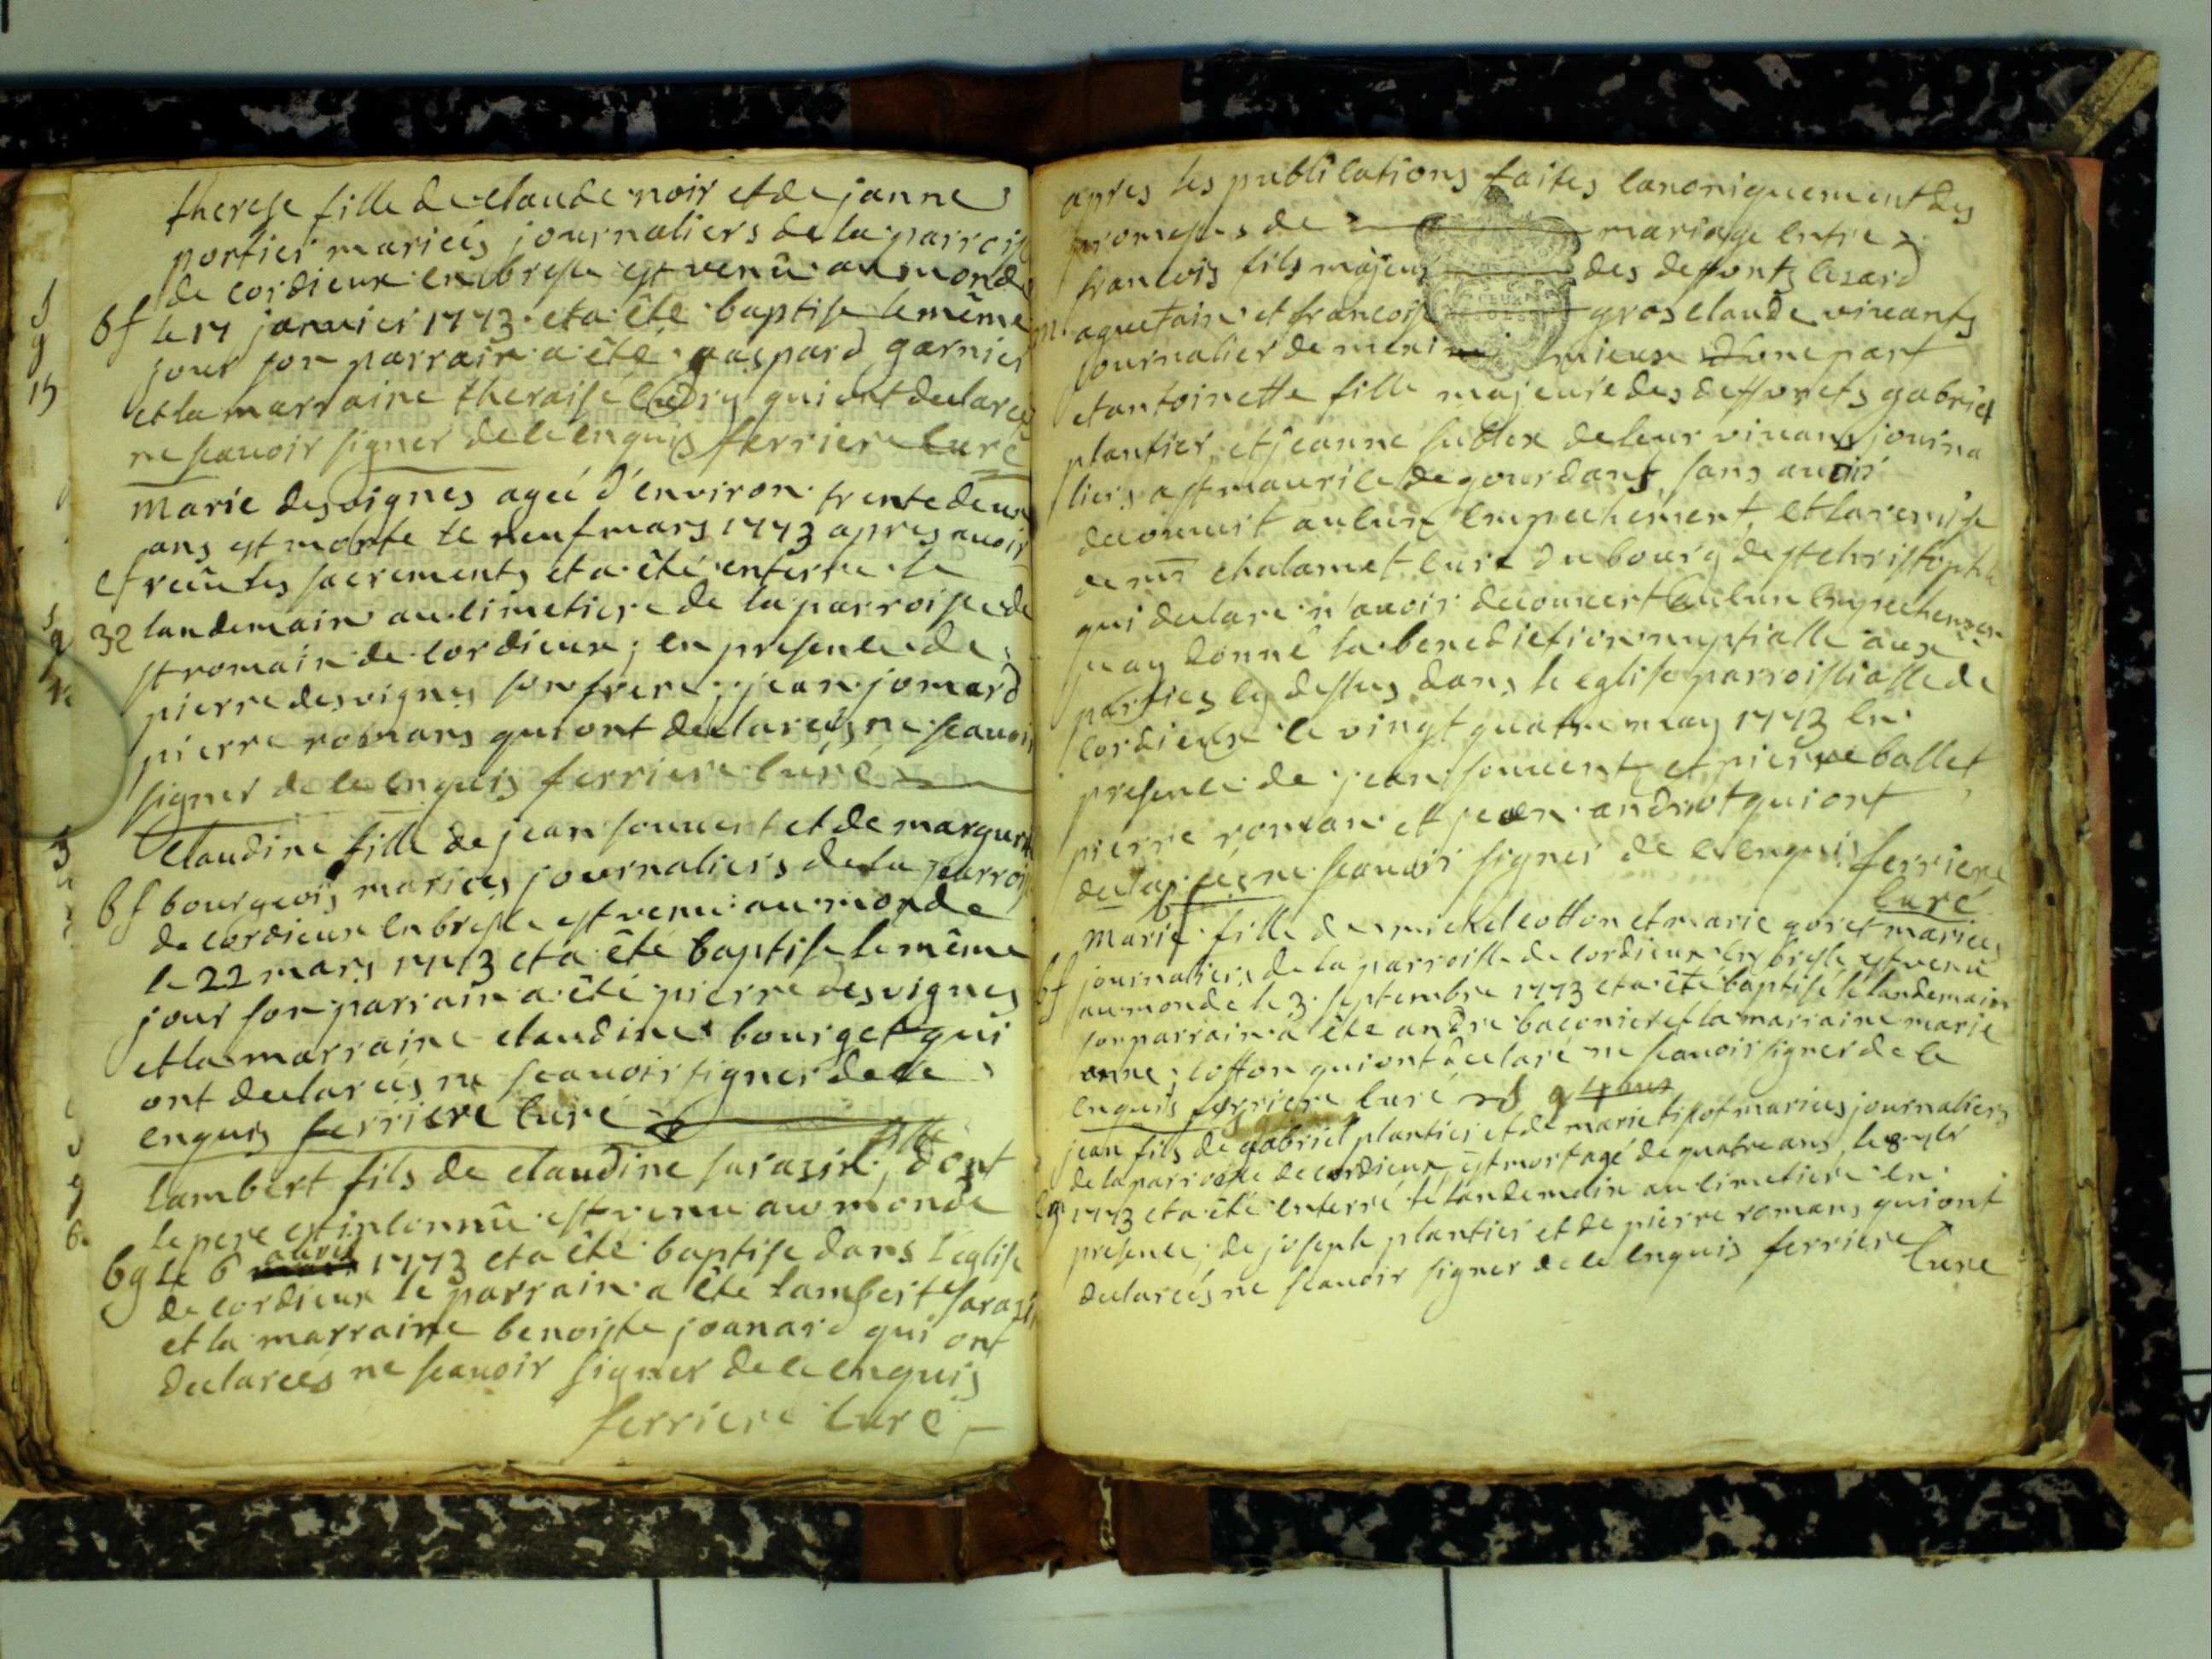 therese fille de claude noir et de janne
portier mariées journaliers de la parroise
de cordieux en bresse est venu au monde
bf le 17 janvier 1773 et a été baptise le même
jour son parrain a été gaspard garnier
et la marraine theraise qui ont declarés
ne scavoir signer de ce enquis ferriere curé
marie desvignes agée d'environ trente deux
ans est morte le neuf mars 1773 apres avoir
ef recû les sacrements et a été enterré le
32 landemain au cimetiere de la parroise de
st romain de cordieux ; en presence de
pierre desvignes son frere ; jean jomard
pierre romans qui ont declareés ne scavoir
signer de ce enquis ferriere curé
Claudine fille de jean souvent et de marguerite
bf bourgeois mariées journaliers de la parroise
de cordieux en bresse est venu au monde
le 22 mars 1773 et a été baptise le même
jour son parrain a été pierre desvignes
et la marraine claudine bourget qui
ont declareés ne scavoir signer de ce
enquis ferriere curé
fille
lambert fils de claudine sarasin, dont
le pere est inconnû est venu au monde
avril
bg le 6 1773 et a été baptise dans l'eglise
de cordieux le parrain a été lambert sarasin
et la marraine benoiste joanard qui ont
declareés ne scavoir signer de ce enquis
ferriere curé
apres les publications faites canoniquement des
promesses de mariage entre
francois fils majeur des deffonts cesard
m aquetain et francoise gros claude vivants
journalier de meximieux d'une part
et antoinette fille majeure des deffonts gabriel
plantier et jeanne de leur vivans journa
liers a st maurice de gourdans sans avoir
decouvert aucun empechement, et la remise
de mr chalamet curé du bourg de st christophe
qui declare n'avoir decouvert aucun empechement
j'ay donné la benediction nuptialle aux
parties cy dessus dans le eglise parroissialle de
cordieux le vingt quatre may 1773 en
presence de jean souvent et pierre ballet
pierre roman et jean androt qui ont
declareés ne scavoir signer de ce enquis ferriere
curé
Marie fille de michel cotton et marie goret mariées
journaliers de la parroisse de cordieux en bresse est venu
bf au monde le 3 septembre 1773 et a été baptisé le landemain
son parrain a été andre baconier et la marraine marie
anne cotton qui ont declaré ne scavoir signer de ce
enquis ferriere curé
jean fils de gabriel plantier et de marie tipot mariées journaliers
de la parroisse de cordieux, est mort agé de quatre ans le 8
eg 1773 et a été enterré le landemain au cimetiere en
presence, de joseph plantier et de pierre romans qui ont
declareés ne scavoir signer de ce enquis ferriere
curé